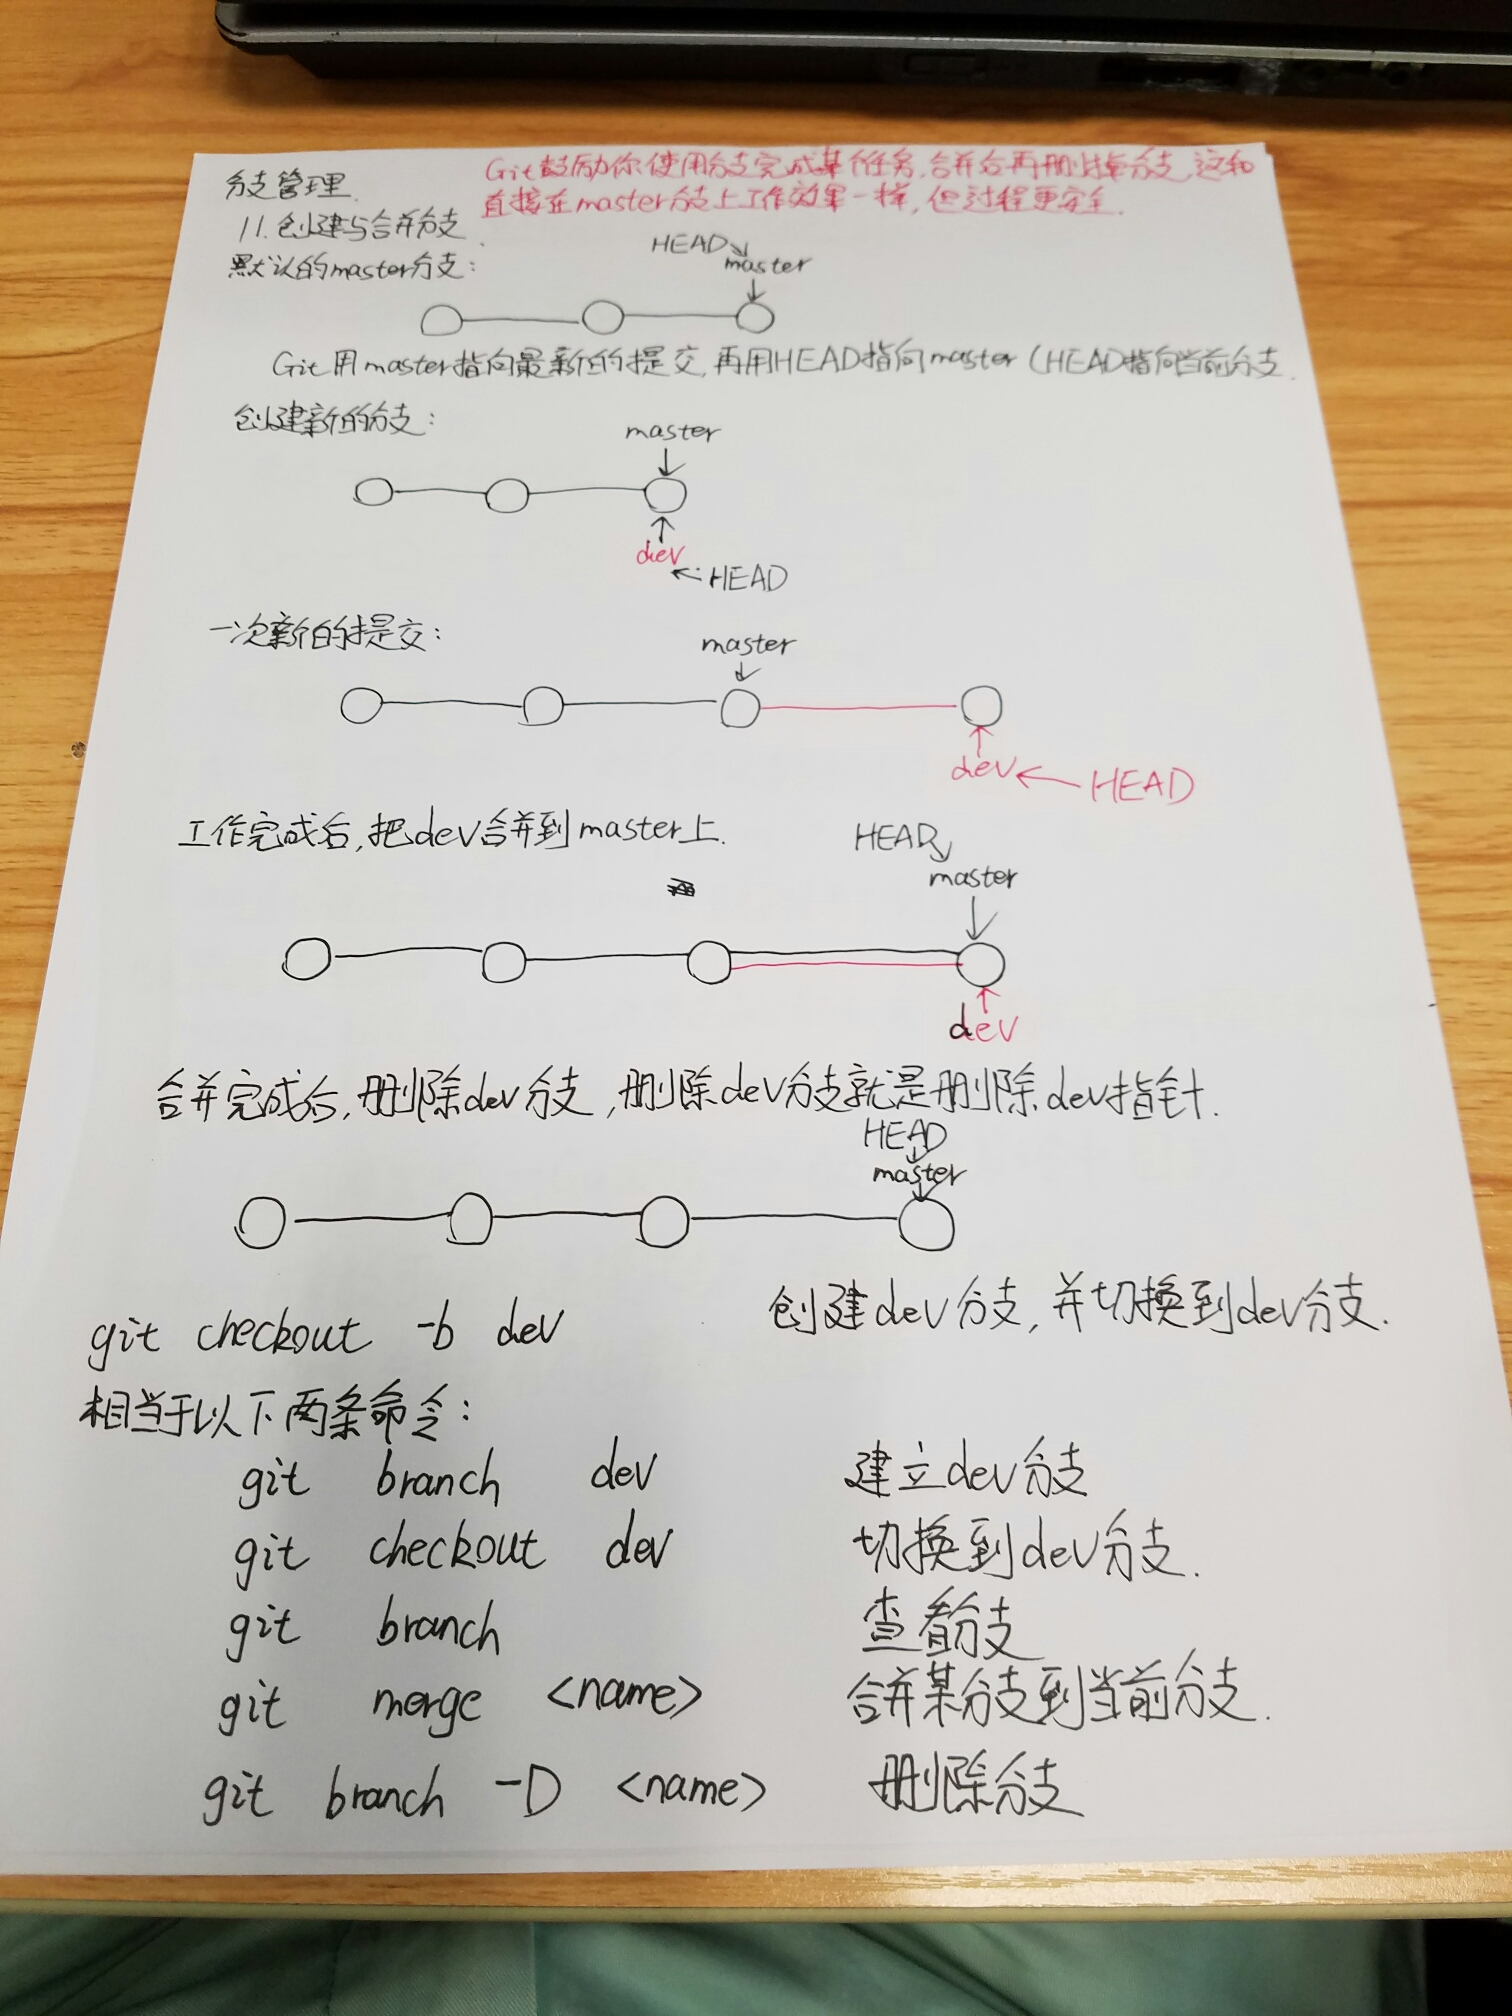 Git鼓励你使用分支完成某个任务,合并后再删掉分支,这和
直接在master分支上工作效果一样,但过程更安全.
分支管理.
11.创建与合并分支.
默认的master分支:
HEAD
master
Git用master指向最新的提交,再用HEAD指向master(HEAD指向当前分支.
创建新的分支:
master
dev
HEAD
一次新的提交:
master
dev
HEAD
工作完成后,把dev合并到master上.
HEAD
master
dev
合并完成后,删除dev分支,删除dev分支就是删除dev指针.
HEAD
master
git checkout -b dev 创建dev分支,并切换到dev分支.
相当于以下两条命令:
git branch dev 建立dev分支
git checkout dev 切换到dev分支.
git branch 查看分支
git merge <name> 合并某分支到当前分支.
git branch -D <name> 删除分支